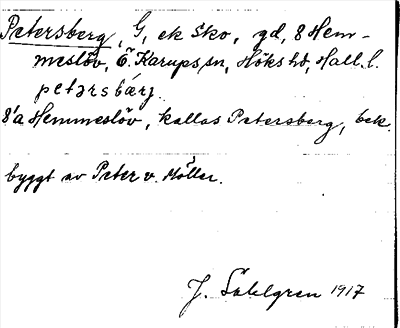 Petersberg, G, ek Sko, gd, 8 Hem-
meslöv, Ö. Karups sn, Höks hd, Hall. l.
petərsbárj.
8'a Hemmeslöv, kallas Petersberg, bek.
byggt av Peter v. Möller.
J. Sahlgren 1917